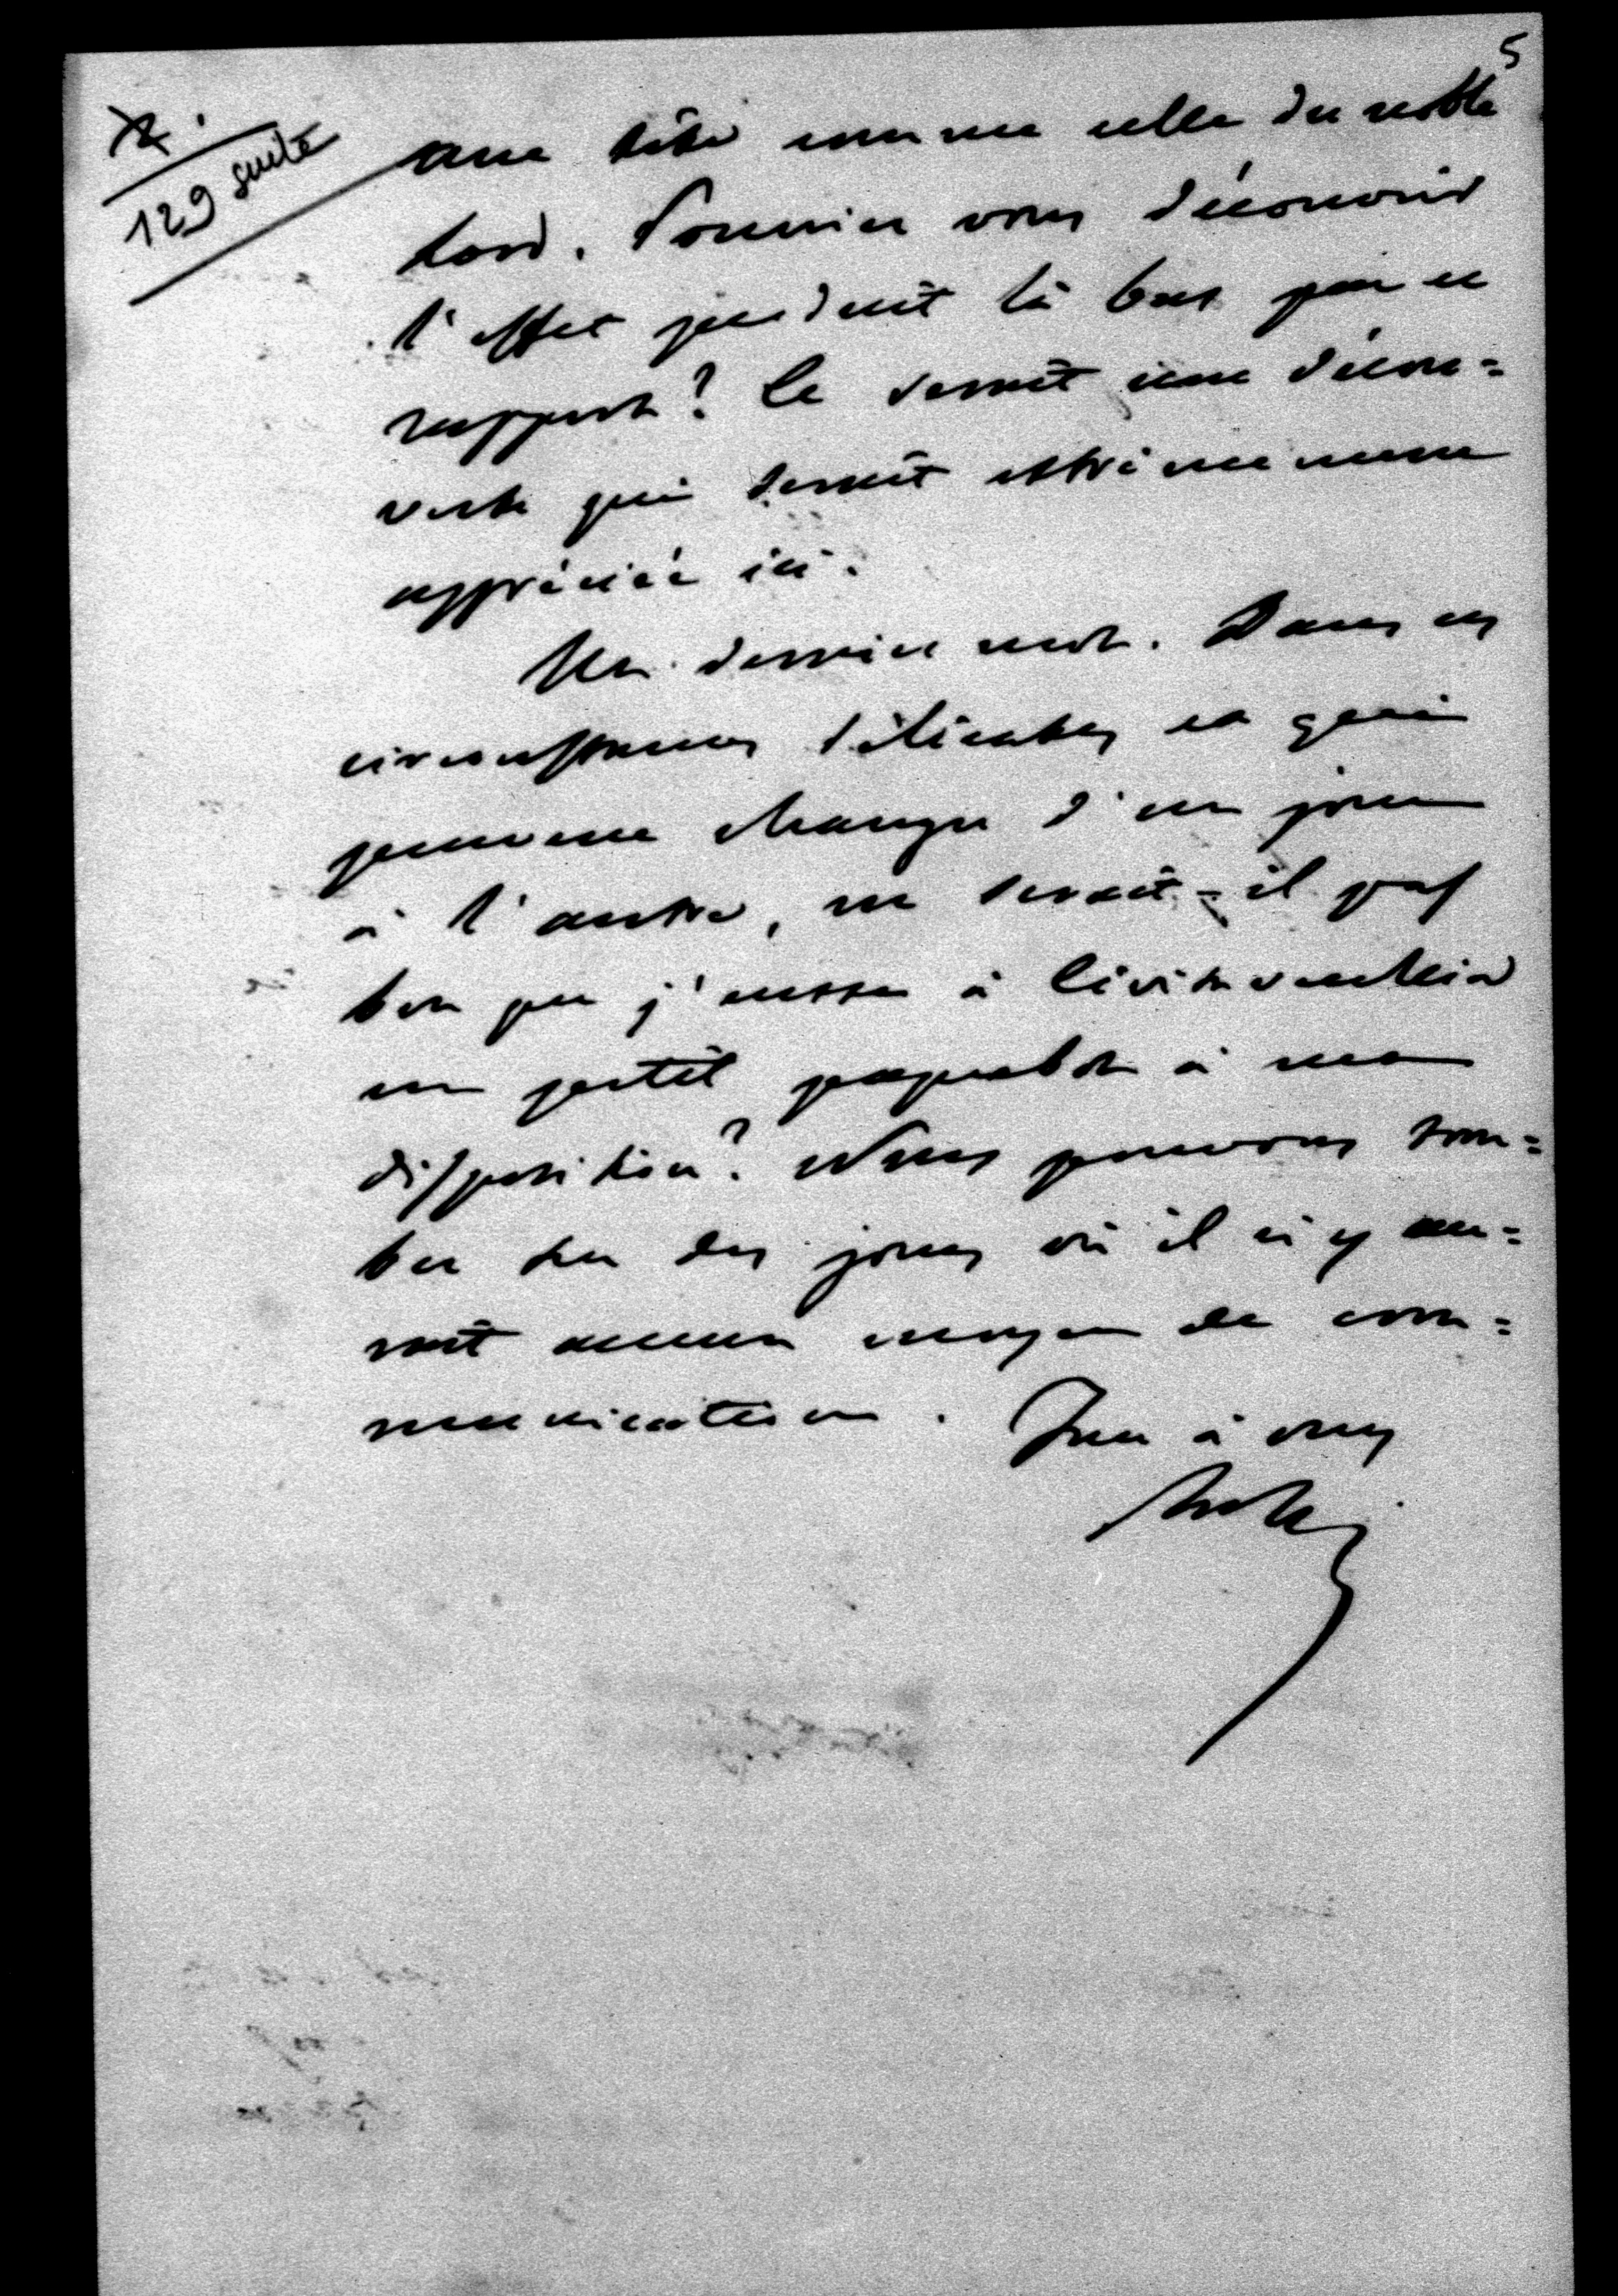 5
129 suite
une tête comme celle du noble
Lord. Pourriez vous découvrir
l'effet produit là bas par ce
rapport? Ce serait une décou=
verte qui serait extrêmement
appréciée ici.
Un dernier mot. Dans ces
circonstances délicates et qui
peuvent changer d'un jour
à l'autre, ne serait-il pas
bon que j'eusse à Civitavecchia
un petit paquebot à ma
disposition? Nous pouvons tom=
ber sur des jours où il n'y au=
rait aucun moyen de com=
munication. Tout à vous